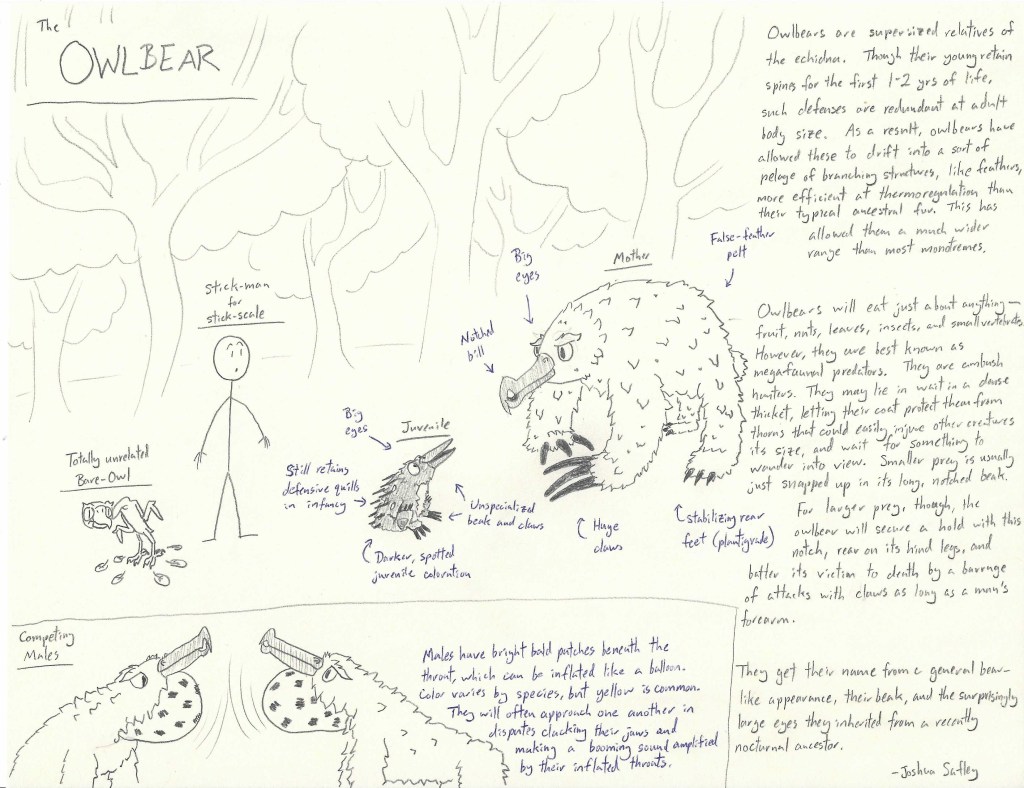 The
OWLBEAR
Owlbears are supersized relatives of
the echidna. Though their young retain
spines for the first 1-2 yrs of life,
such defenses are redundant at adult
body size. As a result, owlbears have
allowed these to drift into a sort of
pelage of branching structures, like feathers,
more efficient at thermoregulation than
their typical ancestral fur. This has
allowed them a much wider
range than most monotremes.
Stick-man
for
stick-scale
Totally unrelated
Bare-Owl
Big
eyes
Juvenile
Still retains
defensive quills
in infancy
Unspecialized
beak and claws
Darker, spotted
juvenile coloration
Mother
Big
eyes
Notched
bill
False-feather
pelt
Huge
claws
stabilizing rear
feet (plantigrade)
Owlbears will eat just about anything—
fruit, nuts, leaves, insects, and small vertebrates.
However, they are best known as
megafaunal predators. They are ambush
hunters. They may lie in wait in a dense
thicket, letting their coat protect them from
thorns that could easily injure other creatures
its size, and wait for something to
wander into view. Smaller prey is usually
just snapped up in its long, notched beak.
For larger prey, though, the
owlbear will secure a hold with this
notch, rear on its hind legs, and
batter its victim to death by a barrage
of attacks with claws as long as a man's
forearm.
Competing
Males
Males have bright bald patches beneath the
throat, which can be inflated like a balloon.
Color varies by species, but yellow is common.
They will often approach one another in
disputes clacking their jaws and
making a booming sound amplified
by their inflated throats.
They get their name from a general bear-
like appearance, their beak, and the surprisingly
large eyes they inherited from a recently
nocturnal ancestor.
-Joshua Safley